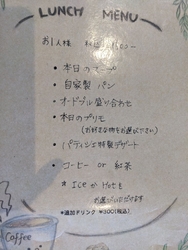 LUNCH MENU
お1人様 ¥1500-
・本日のスープ
・自家製 パン
・オードブル盛り合わせ
・本日のプリモ
(お好きな物をお選びください)
・パティシエ特製デザート
・コーヒー or 紅茶
* ICE か Hotを
お選びいただけます
*追加ドリンク ¥300(税込)
Coffee